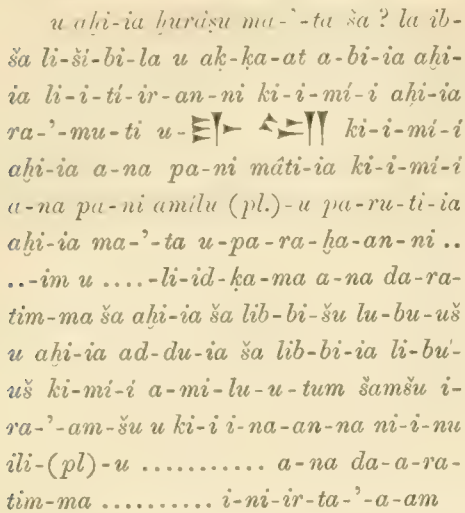 u aḫi-ia ḫurâṣu ma-’-ta ša ? la ib-
ša li-ší-bi-la u ak-ḳa-at a-bi-ia aḫi-
ia li-i-tí-ir-an-ni ki-i-mí-i aḫi-ia
ra-’-mu-ti u- ki-i-mí-í
aḫi-ia a-na pa-ni mâti-ia ki-i-mí-í
a-na pa-ni amilu (pl.)-u pa-ru-ti-ia
aḫi-ia ma-’-ta u-pa-ra-ḫa-an-ni ..
..-im u ....-li-id-ḳa-ma a-na da-ra-
tim-ma ša aḫi-ia ša lib-bi-šu lu-bu-uš
u aḫi-ia ad-du-ia ša lib-bi-ia li-bu-
uš ki-mí-í a-mi-lu-u-tum šamšu i-
ra-’-am-šu u ki-i i-na-an-na ni-i-nu
ili-(pl)-u ........... a-na da-a-ra-
tim-ma .......... i-ni-ir-ta-’-a-am